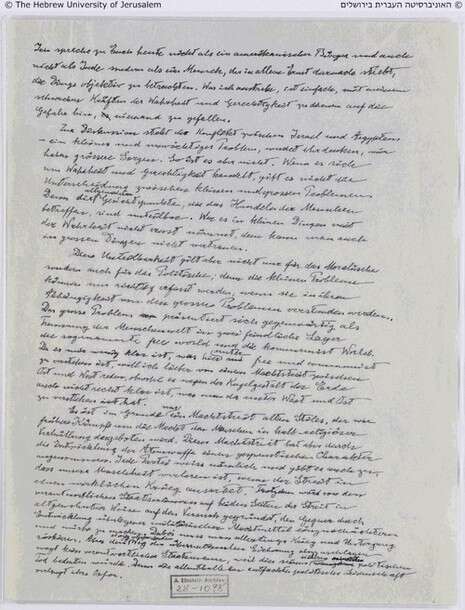 © The Hebrew University of Jerusalem
© האוניברסיטה העברית בירושלים
Ich spreche zu Euch heute nicht als ein amerikanischer Bürger und auch
nicht als Jude sondern als ein Mensch, der in allem Ernst danach strebt,
die Dinge objektiv zu betrachten. Was ich anstrebe, ist einfach, mit meinen
schwachen Kräften der Wahrheit und Gerechtigkeit zu dienen auf die
Gefahr hin, niemand zu gefallen.
Zur Diskussion steht der Konflikt zwischen Israel und Aegypten
- ein kleines und unwichtiges Problem, werdet Ihr denken, wir
haben grössere Sorgen. So ist es aber nicht. Wenn es sich
um Wahrheit und Gerechtigkeit handelt, gibt es nicht die
Unterscheidung zwischen kleinen und grossen Problemen.
Denn die allgemeinen Gesichtspunkte, die das Handeln der Menschen
betreffen, sind unteilbar. Wer es in kleinen Dingen mit
der Wahrheit nicht ernst nimmt, dem kann man auch
in grossen Dingen nicht vertrauen.
Diese Unteilbarkeit gilt aber nicht nur für das Moralische
sondern auch für das Politische; denn die kleinen Probleme
können nur richtig erfasst werden, wenn sie in ihrer
Abhängigkeit von den grossen Problemen verstanden werden.
Das grosse Problem präsentiert sich gegenwärtig als
Trennung der Menschenwelt in zwei feindliche Lager
die sogenannte free world und die kommunist World.
Da es mir nicht klar ist, was hier unter free und communist
zu verstehen ist, will ich lieber von einem Machtstreit zwischen
Ost und West reden, obwohl es wegen der Kugelgestalt der Erde
auch nicht recht klar ist, was man da unter West und Ost
zu verstehen hat.
Es ist im Grunde ein Machtstreit alten Stiles, der wie
frühere Kämpfe um die Macht den Menschen in halb-religiöser
Verhüllung dargeboten wird. Dieser Machtstreit hat aber durch
die Entwicklung der Atomwaffe einen gespenstischen Charakter
angenommen. Jede Partei weiss nämlich und gibt es auch zu,
dass unsere Menschheit verloren ist, wenn der Streit in
einen wirklichen Krieg ausartet. Trotzdem wird von den
verantwortlichen Staatsmännern auf beiden Seiten der Streit in
altgewohnter Weise auf den Versuch gegründet, den Gegner durch
Entwicklung überlegener militärischer Machtmittel einzuschüchtern
und mürbe zu machen. Dabei muss man allerdings Krieg und Untergang
riskieren. Aber den Weg der übernationalen Sicherung
wagt kein verantwortlicher Staatsmann, weil dies seinen politischen
Tod bedeuten würde. Denn die allenthalben entfachte politische Leidenschaft
verlangt ihre Opfer.
A. Einstein Archive
28-1098